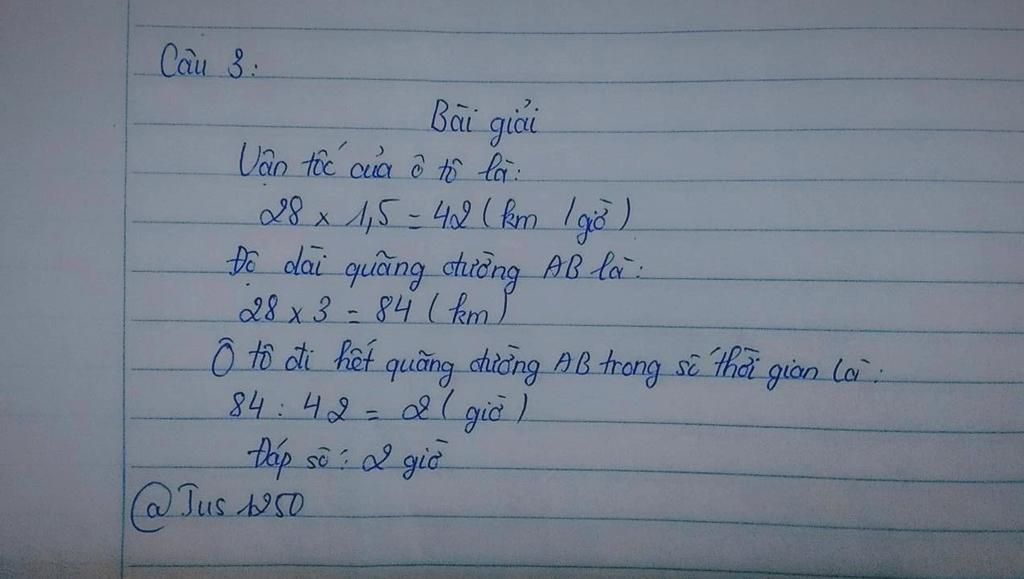 Câu 3:
Bài giải
Vận tốc của ô tô là:
28 x 1,5 = 42 (km / giờ)
Độ dài quãng đường AB là:
28 x 3 = 84 (km)
Ô tô đi hết quãng đường AB trong số thời gian là:
84 : 42 = 2 (giờ)
Đáp số: 2 giờ
@Tus 1250